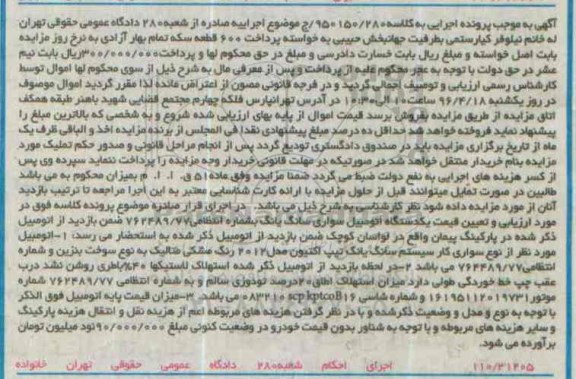 آگهی به موجب پرونده اجرایی به کلاسه ۹۵۰۱۵۰/۲۸۰ج موضوع اجراییه صادره از شعبه ۲۸۰ دادگاه عمومی حقوقی تهران
له خانم نیلوفر کیارستمی بطرفیت جهانبخش حبیبی به خواسته پرداخت ۶۰۰ قطعه سکه تمام بهار آزادی به نرخ روز مزایده
بابت اصل خواسته و مبلغ ریال بابت خسارت دادرسی و مبلغ در حق محکوم لها و پرداخت ۳۰۰/۰۰۰/۰۰۰ ریال بابت نیم
عشر در حق دولت با توجه به عجز محکوم علیه از پرداخت و پس از معرفی مال به شرح ذیل از سوی محکوم لها اموال توسط
کارشناس رسمی ارزیابی و توصیف اجمالی گردید و در فرجه قانونی مصون از اعتراض مانده لذا مقرر گردید اموال موصوف
در روز یکشنبه ۹۶/۴/۱۸ ساعت ۱۰ الی ۱۰:۳۰ در آدرس تهرانپارس فلکه چهارم مجتمع قضایی شهید باهنر طبقه همکف
اتاق مزایده از طریق مزایده بفروش برسد قیمت اموال از پایه بهای ارزیابی شده شروع و به شخصی که بالاترین مبلغ را
پیشنهاد نماید فروخته خواهد شد حداقل ده درصد مبلغ پیشنهادی نقدا فی المجلس از برنده مزایده اخذ و الباقی ظرف یک
ماه از تاریخ برگزاری مزایده باید در صندوق دادگستری تودیع گردد پس از انجام مراحل قانونی و صدور حکم تملیک مورد
مزایده بنام خریدار منتقل خواهد شد در صورتیکه در مهلت قانونی خریدار وجه مزایده را پرداخت ننماید سپرده وی پس
از کسر هزینه های اجرایی به نفع دولت ضبط می گردد ضمنا مزایده وفق ماده ۵ ق. ا. ا. م بمیزان محکوم به می باشد
طالبین در صورت تمایل میتوانند قبل از حلول مزایده با ارائه کارت شناسایی معتبر به این اجرا مراجعه تا ترتیب بازدید
آنان از مورد مزایده داده شود نظر کارشناسی به شرح ذیل می باشد. در اجرای قرار صادره موضوع پرونده کلاسه فوق در
مورد ارزیابی و تعیین قیمت یکدستگاه اتومبیل سواری سانگ یانگ بشماره انتظامی ۷۶۲۴۸۹/۷۷ ضمن بازدید از اتومبیل
ذکر شده در پارکینگ پیمان واقع در لواسان کوچک ضمن بازدید از اتومبیل ذکر شده به استحضار می رسد: ۱-اتومبیل
مورد نظر از نوع سواری کار سیستم سانگ یانگ تیپ اکتیون مدل ۲۰۱۲ رنگ مشکی متالیک به نوع سوخت بنزین و شماره
انتظامی ۷۶۲۴۸۹/۷۷ می باشد ۲-در لحظه بازدید از اتومبیل ذکر شده استهلاک لاستیکها ۴۰% باطری روشن نشد درب
عقب چپ خط خوردگی طولی دارد میزان استهلاک اطاق ۲۰ درصد تودوزی سالم و به شماره انتظامی ۷۶۲۴۸۹/۷۷ شماره
موتور ۱۶۱۹۵۱۱۲۰۱۹۷۳۱ و شماره شاسی
با توجه به نوع و مدل و وضعیت ذکر شده و با در نظر گرفتن هزینه های مربوطه اعم از هزینه نقل و انتقال هزینه پارکینگ
و سایر هزینه های مربوطه و با توجه به شناور بدون قیمت خودرو در وضعیت کنونی مبلغ ۹۰/۰۰۰/۰۰۰ نود میلیون تومان
برآورده می شود.
۱۱۰/۳۱۲۰۵ اجرای احکام شعبه ۲۸۰ دادگاه عمومی حقوقی تهران خانواده